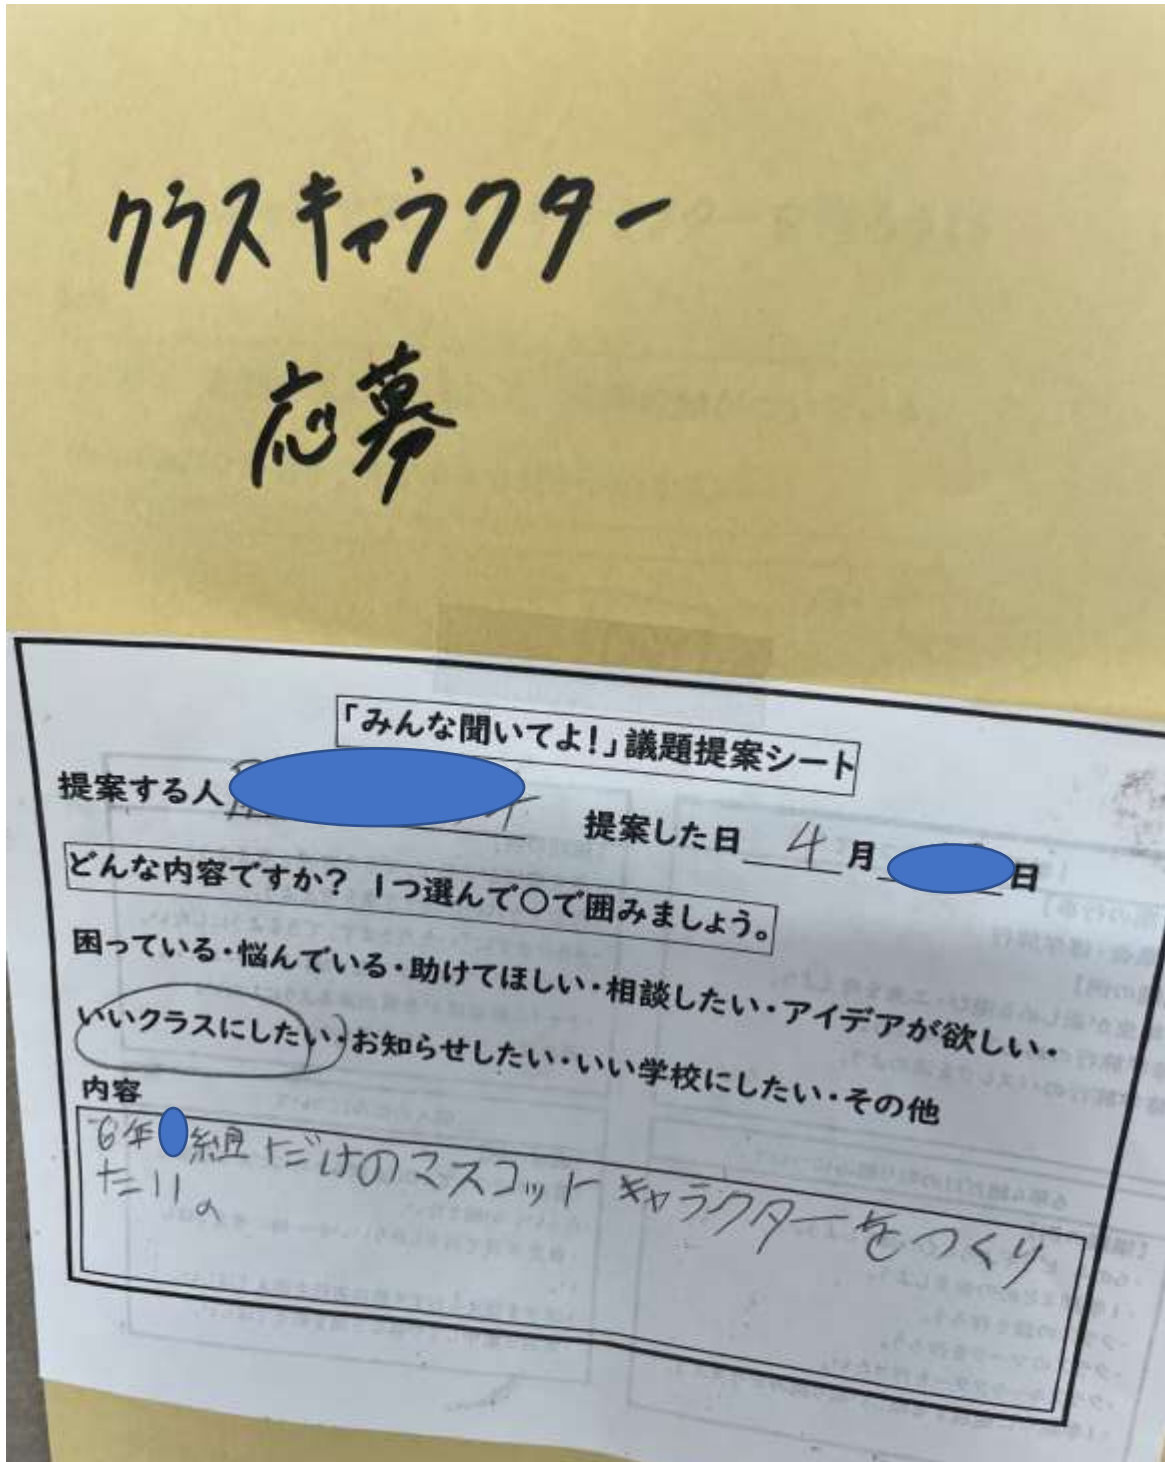 クラスキャラクター
応募
「みんな聞いてよ!」議題提案シート
提案する人 提案した日 4月 日
どんな内容ですか? 1つ選んで○で囲みましょう。
困っている・悩んでいる・助けてほしい・相談したい・アイデアが欲しい・
いいクラスにしたい・お知らせしたい・いい学校にしたい・その他
内容
6年 組だけのマスコットキャラクターをつくり
たい。